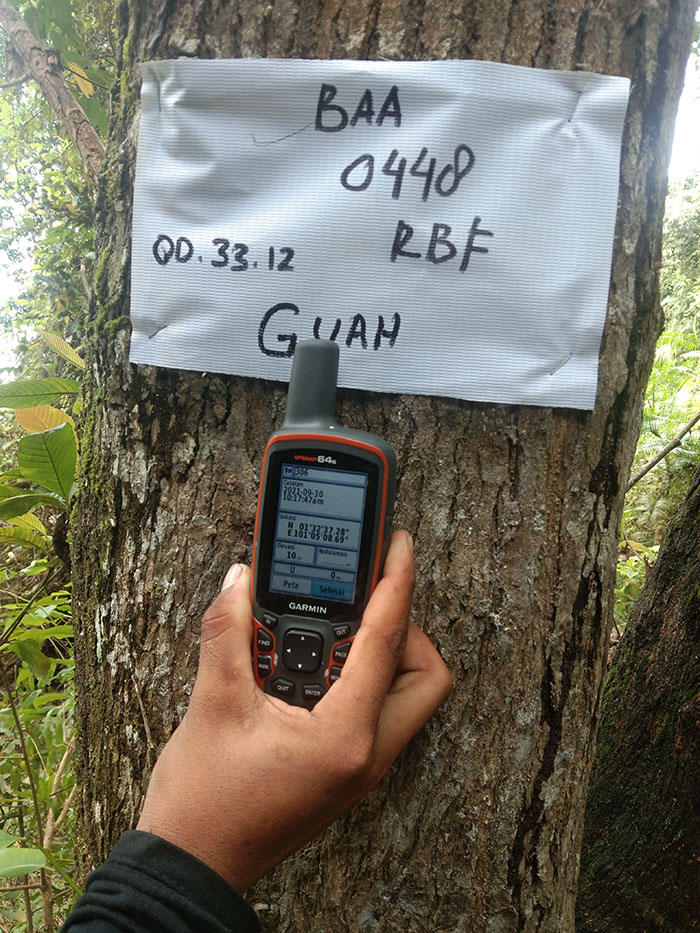 BAA
0448
QD.33.12 RBF
GUAH
GPSMAP 64s
306
Catatan
2021-09-30
10:17:47am
Lokasi
N 01°32'37.28"
E 101°05'08.69"
Elevasi Kedalaman
10 m
U 0m
Peta Selesai
GARMIN
IN OUT
FIND PAGE
MARK
QUIT ENTER